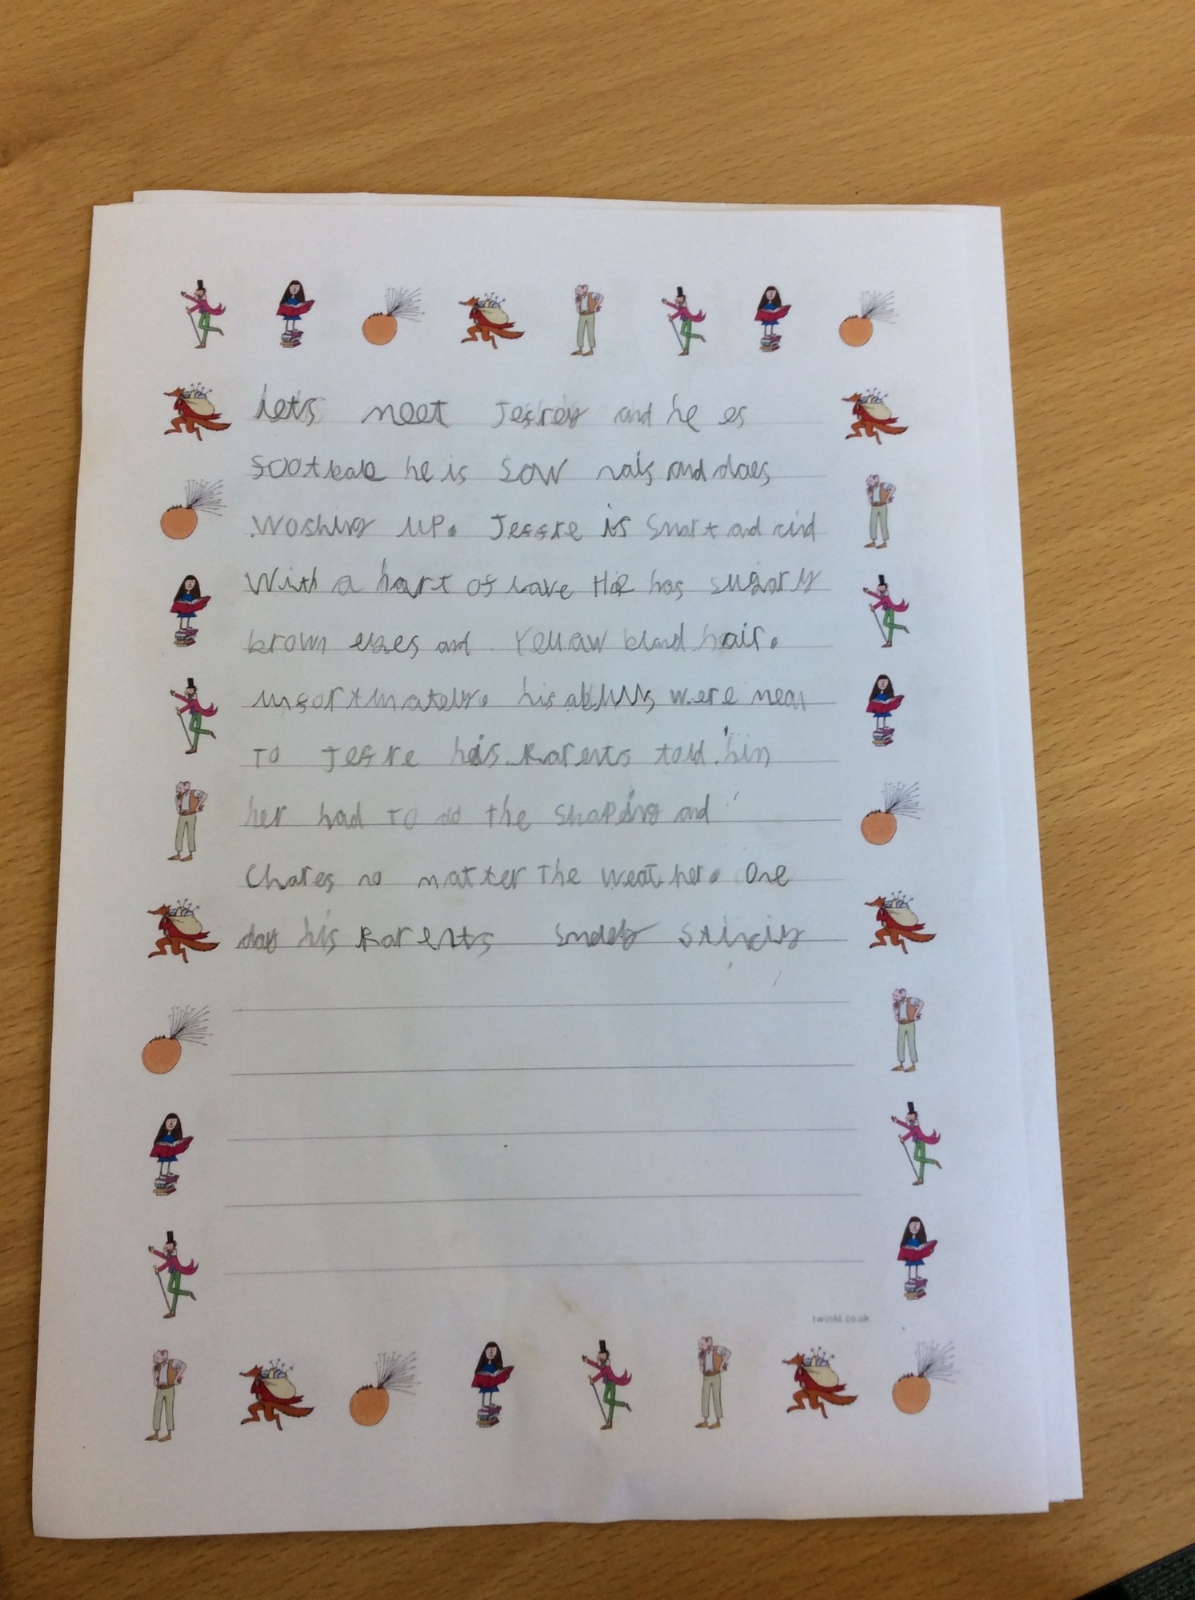 lets meet Jesrey and he es
he is sow nais and does
woshing up. Jessre is smart and cind
with a hart of love He has sugary
brown eyes and yellow blond hair.
his were near
To Jesre his Parents told him
her had To do the shaping and
Chares no matter The weather. One
day his Parents
twinkl.co.uk